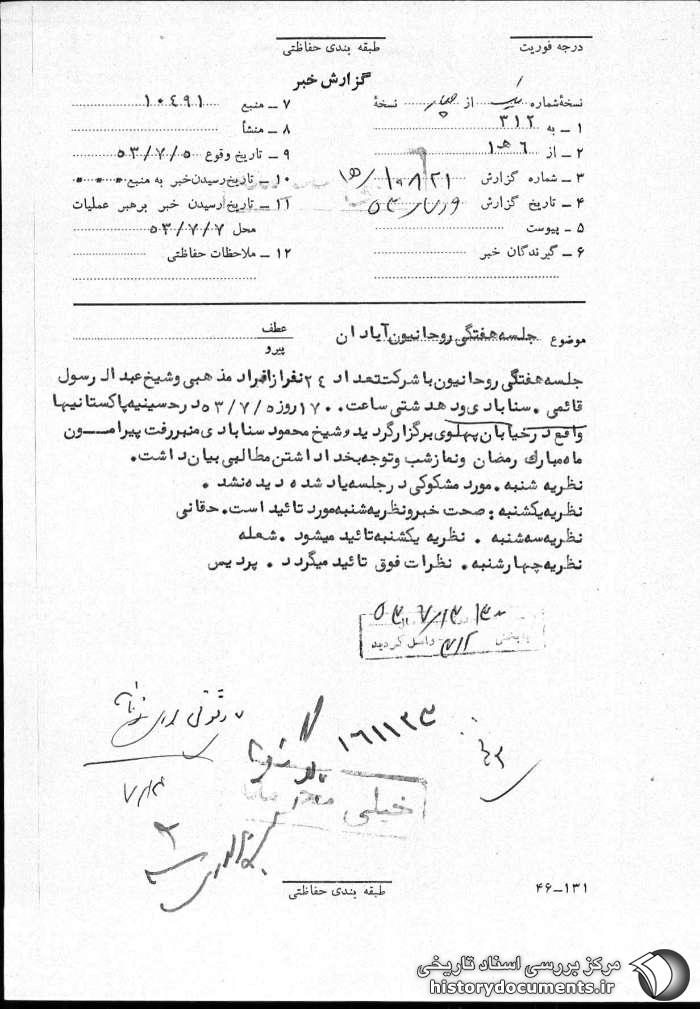 درجه فوریت
طبقه بندی حفاظتی
گزارش خبر
نسخهٔ شماره یک از چهار نسخهٔ
۱ ــ به ۳۱۲
۲ ــ از ۶ هـ ۱
۳ ــ شماره گزارش ۱۰۸۲۱/
۴ ــ تاریخ گزارش
۵ ــ پیوست
۶ ــ گیرندگان خبر
۷ ــ منبع ۱۰۴۹۱
۸ ــ منشأ
۹ ــ تاریخ وقوع ۵۳/۷/۵
۱۰ ــ تاریخ رسیدن خبر به منبع
۱۱ ــ تاریخ رسیدن خبر برهبر عملیات
محل ۵۳/۷/۷
۱۲ ــ ملاحظات حفاظتی
موضوع جلسه هفتگی روحانیون آبادان
عطف
پیرو
جلسه هفتگی روحانیون با شرکت تعداد ۲۴ نفر از افراد مذهبی و شیخ عبدالرسول
قائمی . سنابادی و دهدشتی ساعت ۱۷۰۰ روز ۵۳/۷/۵ در حسینیه پاکستانیها
واقع در خیابان پهلوی برگزار گردید و شیخ محمود سنابادی منبر رفت پیرامــون
ماه مبارك رمضان و نماز شب و توجه بخدا داشتن مطالبی بیان داشت.
نظریه شنبه . مورد مشکوکی در جلسه یاد شده دیده نشد .
نظریه یکشنبه : صحت خبر و نظریه شنبه مورد تائید است. حقانی
نظریه سه شنبه . نظریه یکشنبه تائید میشود . شعله
نظریه چهارشنبه . نظرات فوق تائید میگردد . پردیس
به بخش ۳۱۲ واصل گردید
۱۶۱۱۲۳
خیلی محرمانه
۷/۱۴
طبقه بندی حفاظتی
۴۶ــ۱۳۱
مرکز بررسی اسناد تاریخی
historydocuments.ir